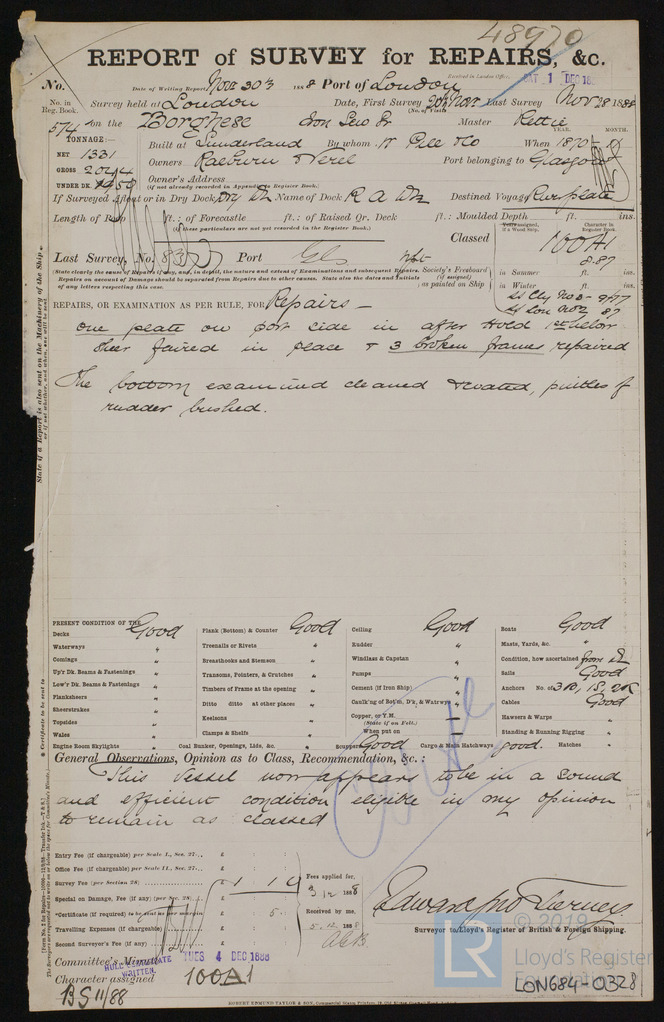 48970
REPORT of SURVEY for REPAIRS, &c.
Received in London Office,
SAT. 1 DEC 18
No. Date of Writing Report Nov 30th 1888 Port of London
No. in Reg. Book. Survey held at London Date, First Survey 20th Nov Last Survey Nov 28 1888
(No. of Visits)
574 on the Borghese Iron Scw Sr Master Rettie
TONNAGE:— YEAR. MONTH.
NET 1331 Built at Sunderland By whom W Pile & Co When 1870
GROSS 2044 Owners Raeburn & Verel Port belonging to Glasgow
UNDER DK. 1950 Owner's Address
(if not already recorded in Appendix to Register Book.)
If Surveyed Afloat or in Dry Dock Dry Dk Name of Dock R A Dk Destined Voyage River plate
Length of Poop ft.: of Forecastle ft.: of Raised Qr. Deck ft.: Moulded Depth ft. ins.
(If these particulars are not yet recorded in the Register Book.)
Classed 100A1
Character in Register Book.
8.87
Last Survey, No. Port Gls
(State clearly the cause of Repairs if any, and, in detail, the nature and extent of Examinations and subsequent Repairs. Repairs on account of Damage should be separated from Repairs due to other causes. State also the dates and initials of any letters respecting this case.
Society's Freeboard (if assigned) as painted on Ship
in Summer ft. ins.
in Winter ft. ins.
REPAIRS, OR EXAMINATION AS PER RULE, FOR Repairs —
one plate on port side in after Hold 1st below
sheer faired in place & 3 broken frames repaired
The bottom examined cleaned & coated, pintles of
rudder bushed.
State if a Report is also sent on the Machinery of the Ship
PRESENT CONDITION OF THE
Decks Good Plank (Bottom) & Counter Good Ceiling Good Boats Good
Waterways " Treenails or Rivets " Rudder " Masts, Yards, &c. "
Comings " Breasthooks and Stemson " Windlass & Capstan " Condition, how ascertained from Dk
Up'r Dk. Beams & Fastenings " Transoms, Pointers, & Crutches " Pumps " Sails Good
Low'r Dk. Beams & Fastenings " Timbers of Frame at the opening " Cement (if Iron Ship) " Anchors No. of 3B, 1S, 2K
Planksheers " Ditto ditto at other places " Caulk'g of Bot'm, D'k, & Waterw'ys " Cables Good
Sheerstrakes " Keelsons " Copper, or Y.M. — Hawsers & Warps "
(State if on Felt.)
Topsides " Clamps & Shelfs " When put on — Standing & Running Rigging "
Wales "
Engine Room Skylights " Coal Bunker, Openings, Lids, &c. " Scuppers Good Cargo & Main Hatchways good. Hatches "
General Observations, Opinion as to Class, Recommendation, &c.:
This vessel now appears to be in a sound
and efficient condition eligible in my opinion
to remain as classed
Entry Fee (if chargeable) per Scale I., Sec. 27... £
Office Fee (if chargeable) per Scale II., Sec. 27... £
Survey Fee (per Section 28) £ 1 1 0
Special on Damage, Fee (if any) (per Sec. 28) £
*Certificate (if required) to be sent as per margin £ 5.
Travelling Expenses (if chargeable) £
Second Surveyor's Fee (if any) £
Fees applied for, 3/12 1888
Received by me, 5.12.1888
Surveyor to Lloyd's Register of British & Foreign Shipping.
Committee's Minute TUES 4 DEC 1888
WRITTEN.
Character assigned 100A1
BS 11/88
ROBERT EDMUND TAYLOR & SON
© 2019
LR
Lloyd's Register
Foundation
LON684-0328